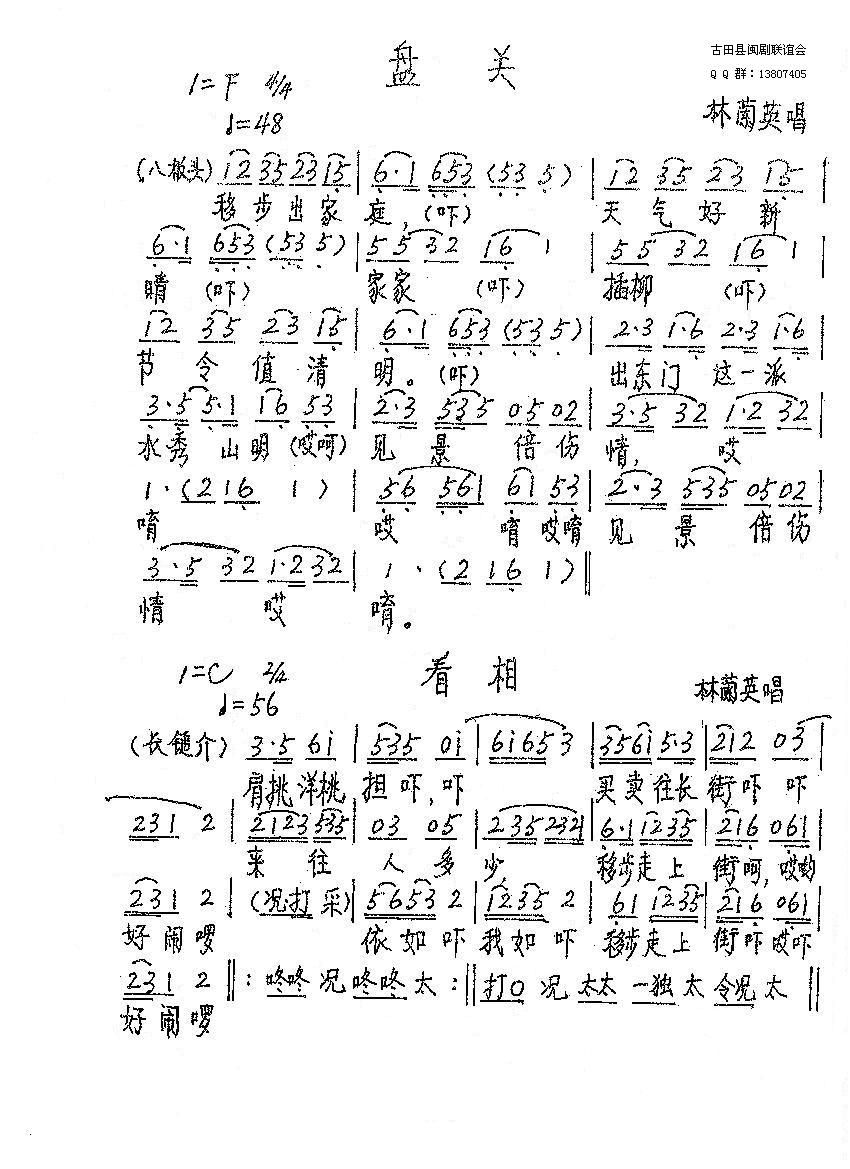 古田县闽剧联谊会
QQ群：13807405
盘关
1=F 4/4
♩=48
林蘭英唱
(八板头) 12 35 23 15 | 6·1 653 (53 5) | 12 35 23 15
移步出家庭,(吓) 天气好新
6·1 653 (53 5) | 55 32 16 1 | 55 32 16 1 |
晴(吓) 家家(吓) 插柳(吓)
12 35 23 15 | 6·1 653 (53 5) | 2·3 1·6 2·3 1·6 |
节令值清明。(吓) 出东门这一派
3·5 5·1 16 53 | 2·3 535 05 02 | 3·5 32 1·2 32 |
水秀山明(哎呵)见景倍伤情,哎
1·(2 16 1) | 56 561 61 53 | 2·3 535 05 02 |
唷 哎唷哎唷见景倍伤
3·5 32 1·2 32 | 1·(2 16 1) ‖
情哎唷。
看相
1=C 2/4
♩=56
林蘭英唱
(长鎚介) 3·5 6i | 535 0i | 6i65 3 | 356i 5·3 | 212 03 |
肩挑洋桃担吓,吓 买卖往长街吓吓
231 2 | 2123 535 | 03 05 | 235 232 | 6·1 1235 | 216 061 |
来往人多少,移步走上街呵,哎哟
231 2 | (况打采) | 5653 2 | 1235 2 | 61 1235 | 216 061 |
好闹啰 依如吓我如吓移步走上街吓哎吓
231 2 ‖: 咚咚况咚咚太 :‖ 打0况太太一独太令况太 ‖
好闹啰